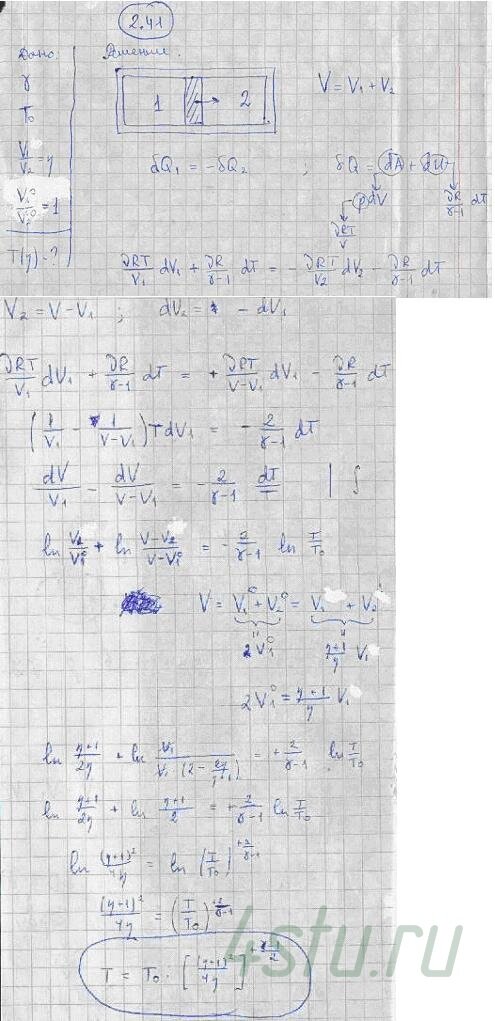 2.41
Дано:
γ
T₀
V₁/V₂ = η
V₁⁰/V₂⁰ = 1
T(η) - ?
Решение.
1 2
V = V₁ + V₂
δQ₁ = -δQ₂ ; δQ = dA + dU
pdV
νRT/V
νR/(γ-1) dT
νRT/V₁ dV₁ + νR/(γ-1) dT = - νRT/V₂ dV₂ - νR/(γ-1) dT
V₂ = V - V₁ ; dV₂ = - dV₁
νRT/V₁ dV₁ + νR/(γ-1) dT = + νRT/(V-V₁) dV₁ - νR/(γ-1) dT
(1/V₁ - 1/(V-V₁)) T dV₁ = - 2/(γ-1) dT
dV/V₁ - dV/(V-V₁) = - 2/(γ-1) dT/T | ∫
ln V₁/V₁⁰ + ln (V-V₁)/(V-V₁⁰) = - 2/(γ-1) ln T/T₀
V = V₁⁰ + V₂⁰ = V₁ + V₂
2V₁⁰
(η+1)/η V₁
2V₁⁰ = (η+1)/η V₁
ln (η+1)/2η + ln V₁/(V₁ (2 - 2η/(η+1))) = + 2/(γ-1) ln T/T₀
ln (η+1)/2η + ln (η+1)/2 = + 2/(γ-1) ln T/T₀
ln (η+1)²/4η = ln (T/T₀)^(+2/(γ-1))
(η+1)²/4η = (T/T₀)^(+2/(γ-1))
T = T₀ · [(η+1)²/4η]^(+(γ-1)/2)
4stu.ru